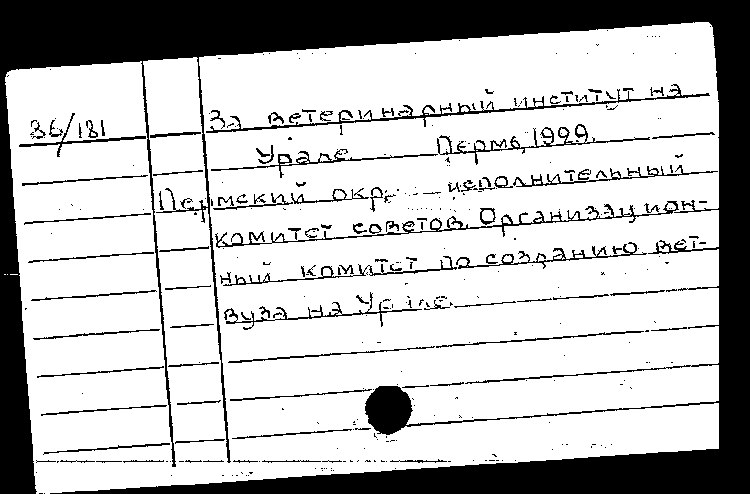 36/181 За ветеринарный институт на
Урале. Пермь, 1929.
Пермский окр. исполнительный
комитет советов. Организацион-
ный комитет по созданию вет-
вуза на Урале.